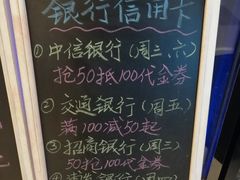 银行信用卡
①中信银行(周三、六)
抢50抵100代金券
②交通银行(周五)
满100减50起
③招商银行(周三)
50抢100代金券